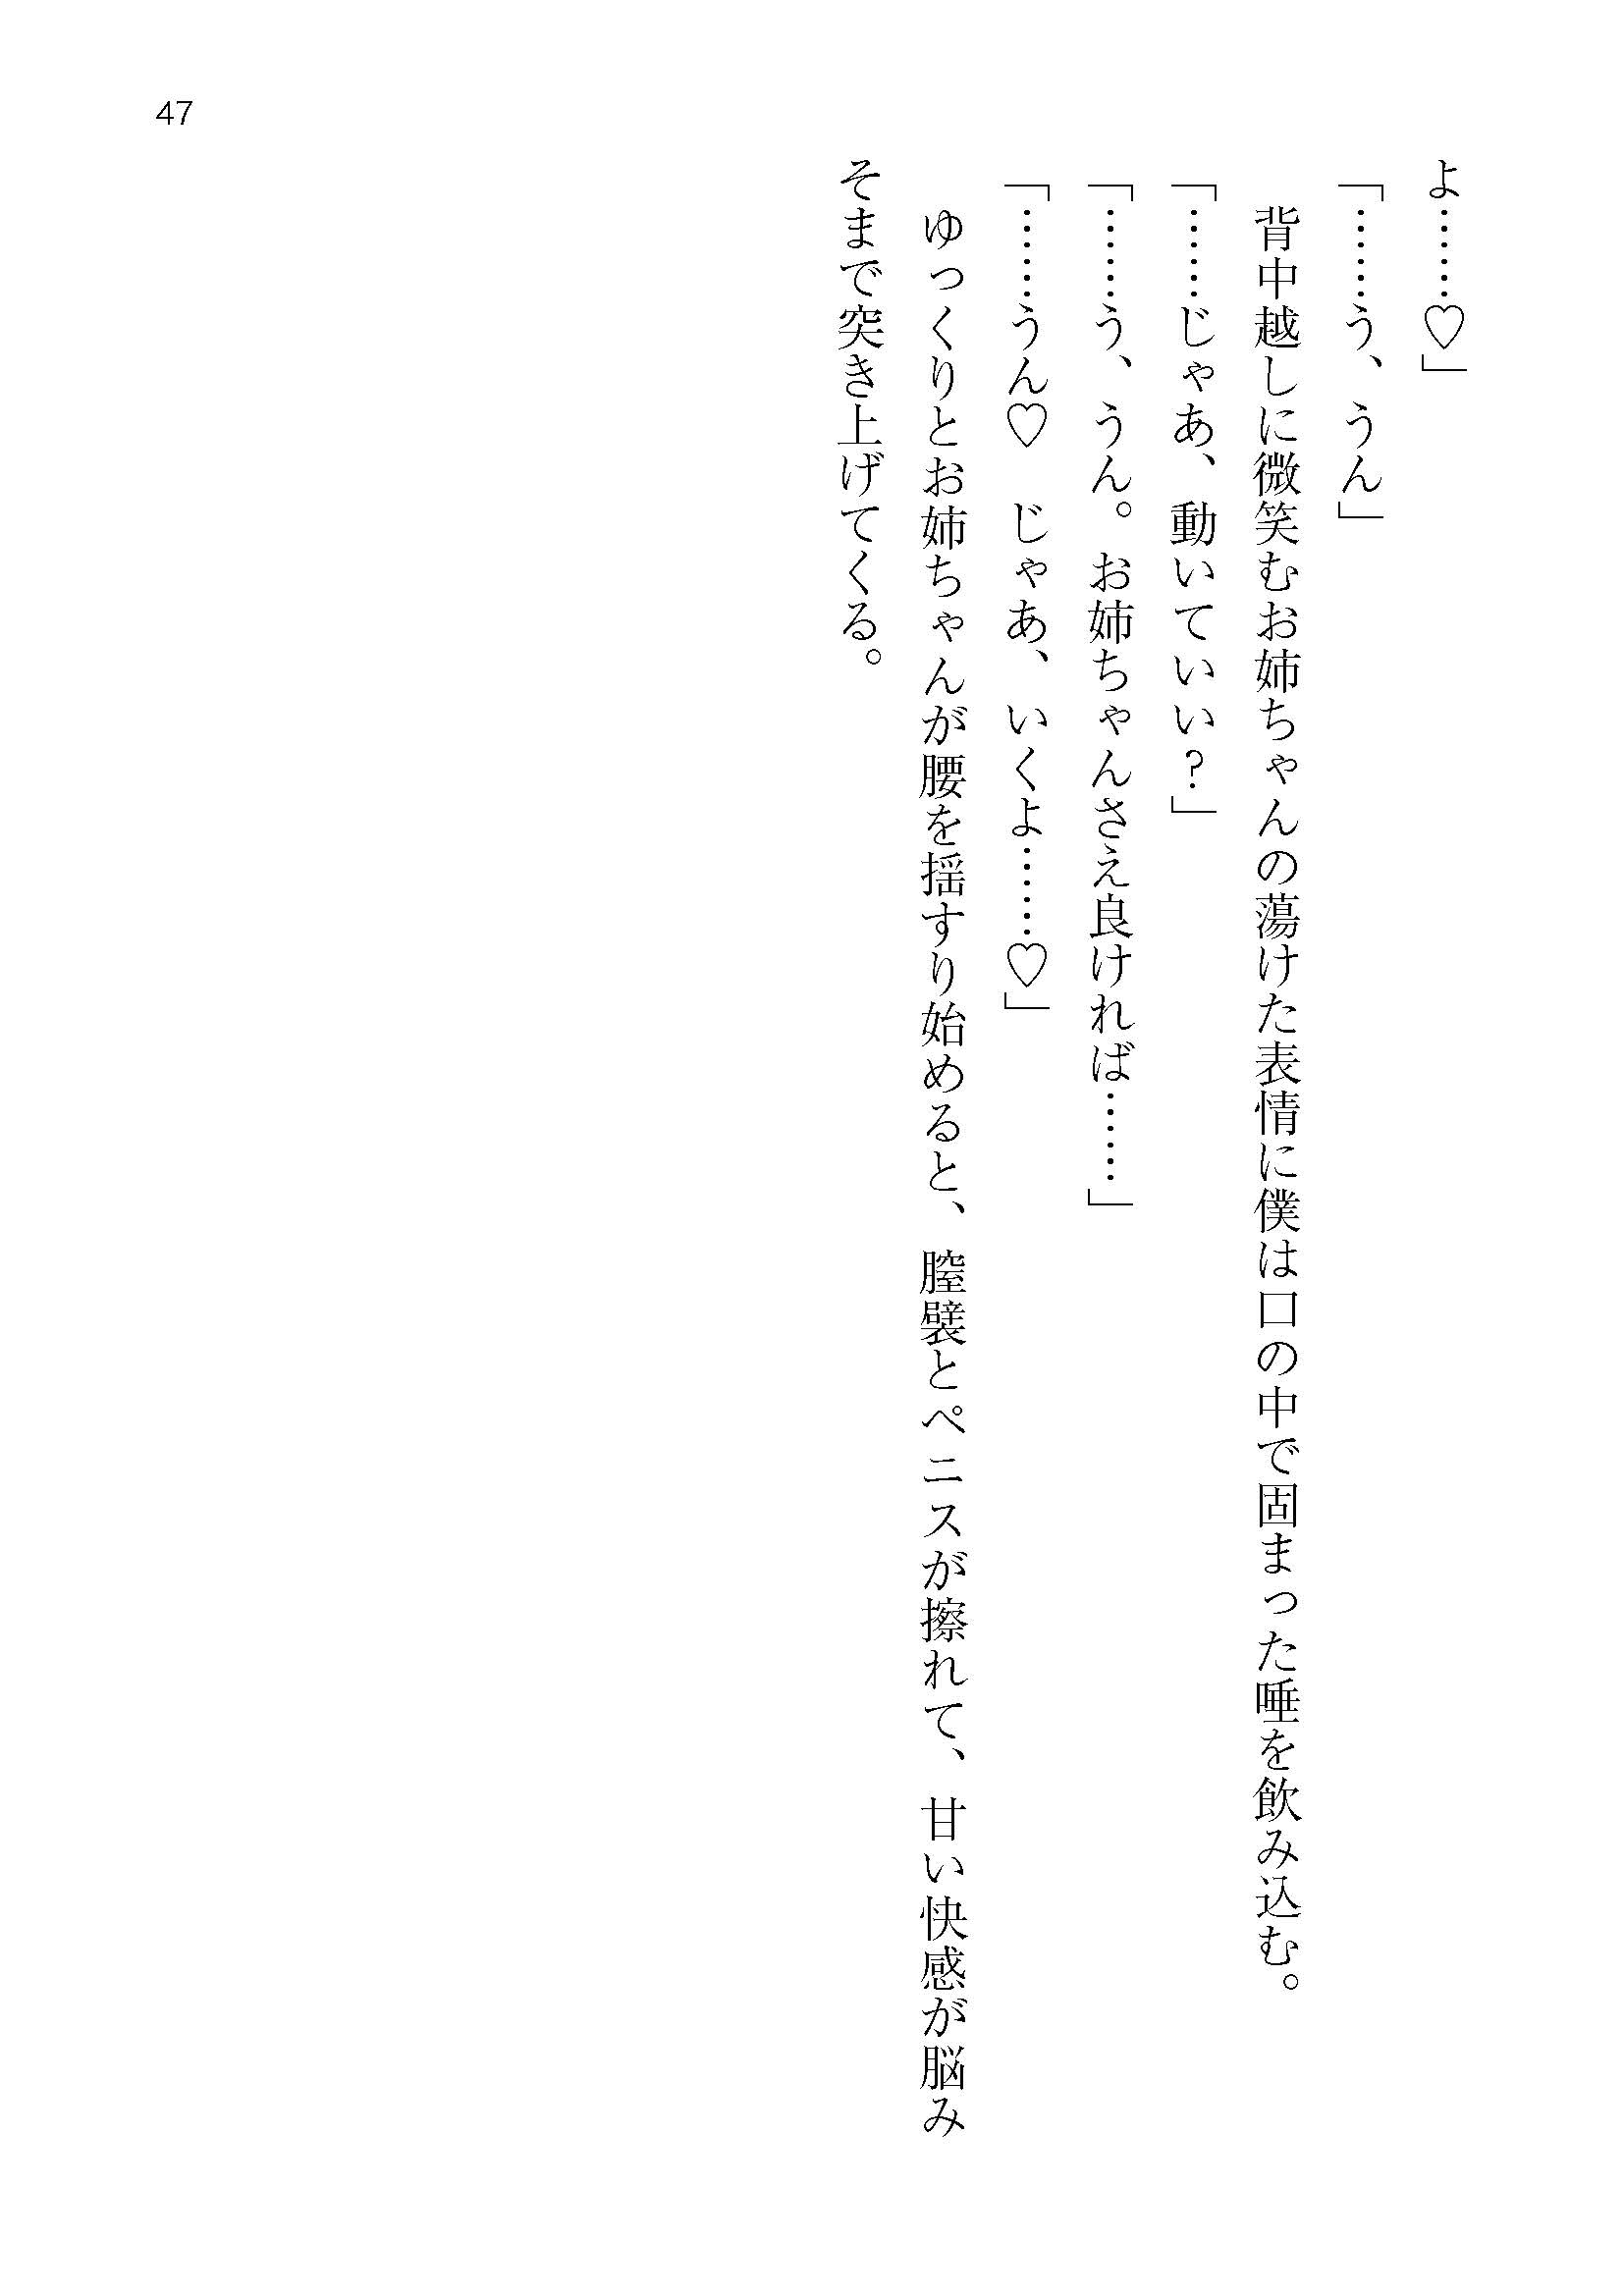 よ……♡」
「……う、うん」
　背中越しに微笑むお姉ちゃんの蕩けた表情に僕は口の中で固まった唾を飲み込む。
「……じゃあ、動いていい？」
「……う、うん。お姉ちゃんさえ良ければ……」
「……うん♡　じゃあ、いくよ……♡」
　ゆっくりとお姉ちゃんが腰を揺すり始めると、膣襞とペニスが擦れて、甘い快感が脳み
そまで突き上げてくる。
47